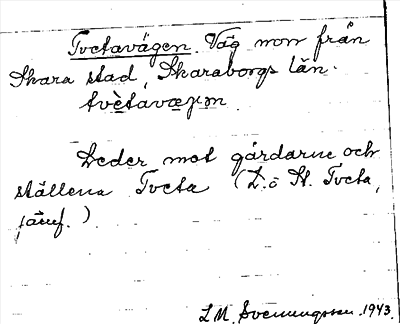 Tvetavägen. Väg norr från
Skara stad, Skaraborgs län.
tvètavæjen
Leder mot gårdarne och
ställena Tveta (L. o St. Tveta,
jämf.)
L M. Svenungsson. 1943.